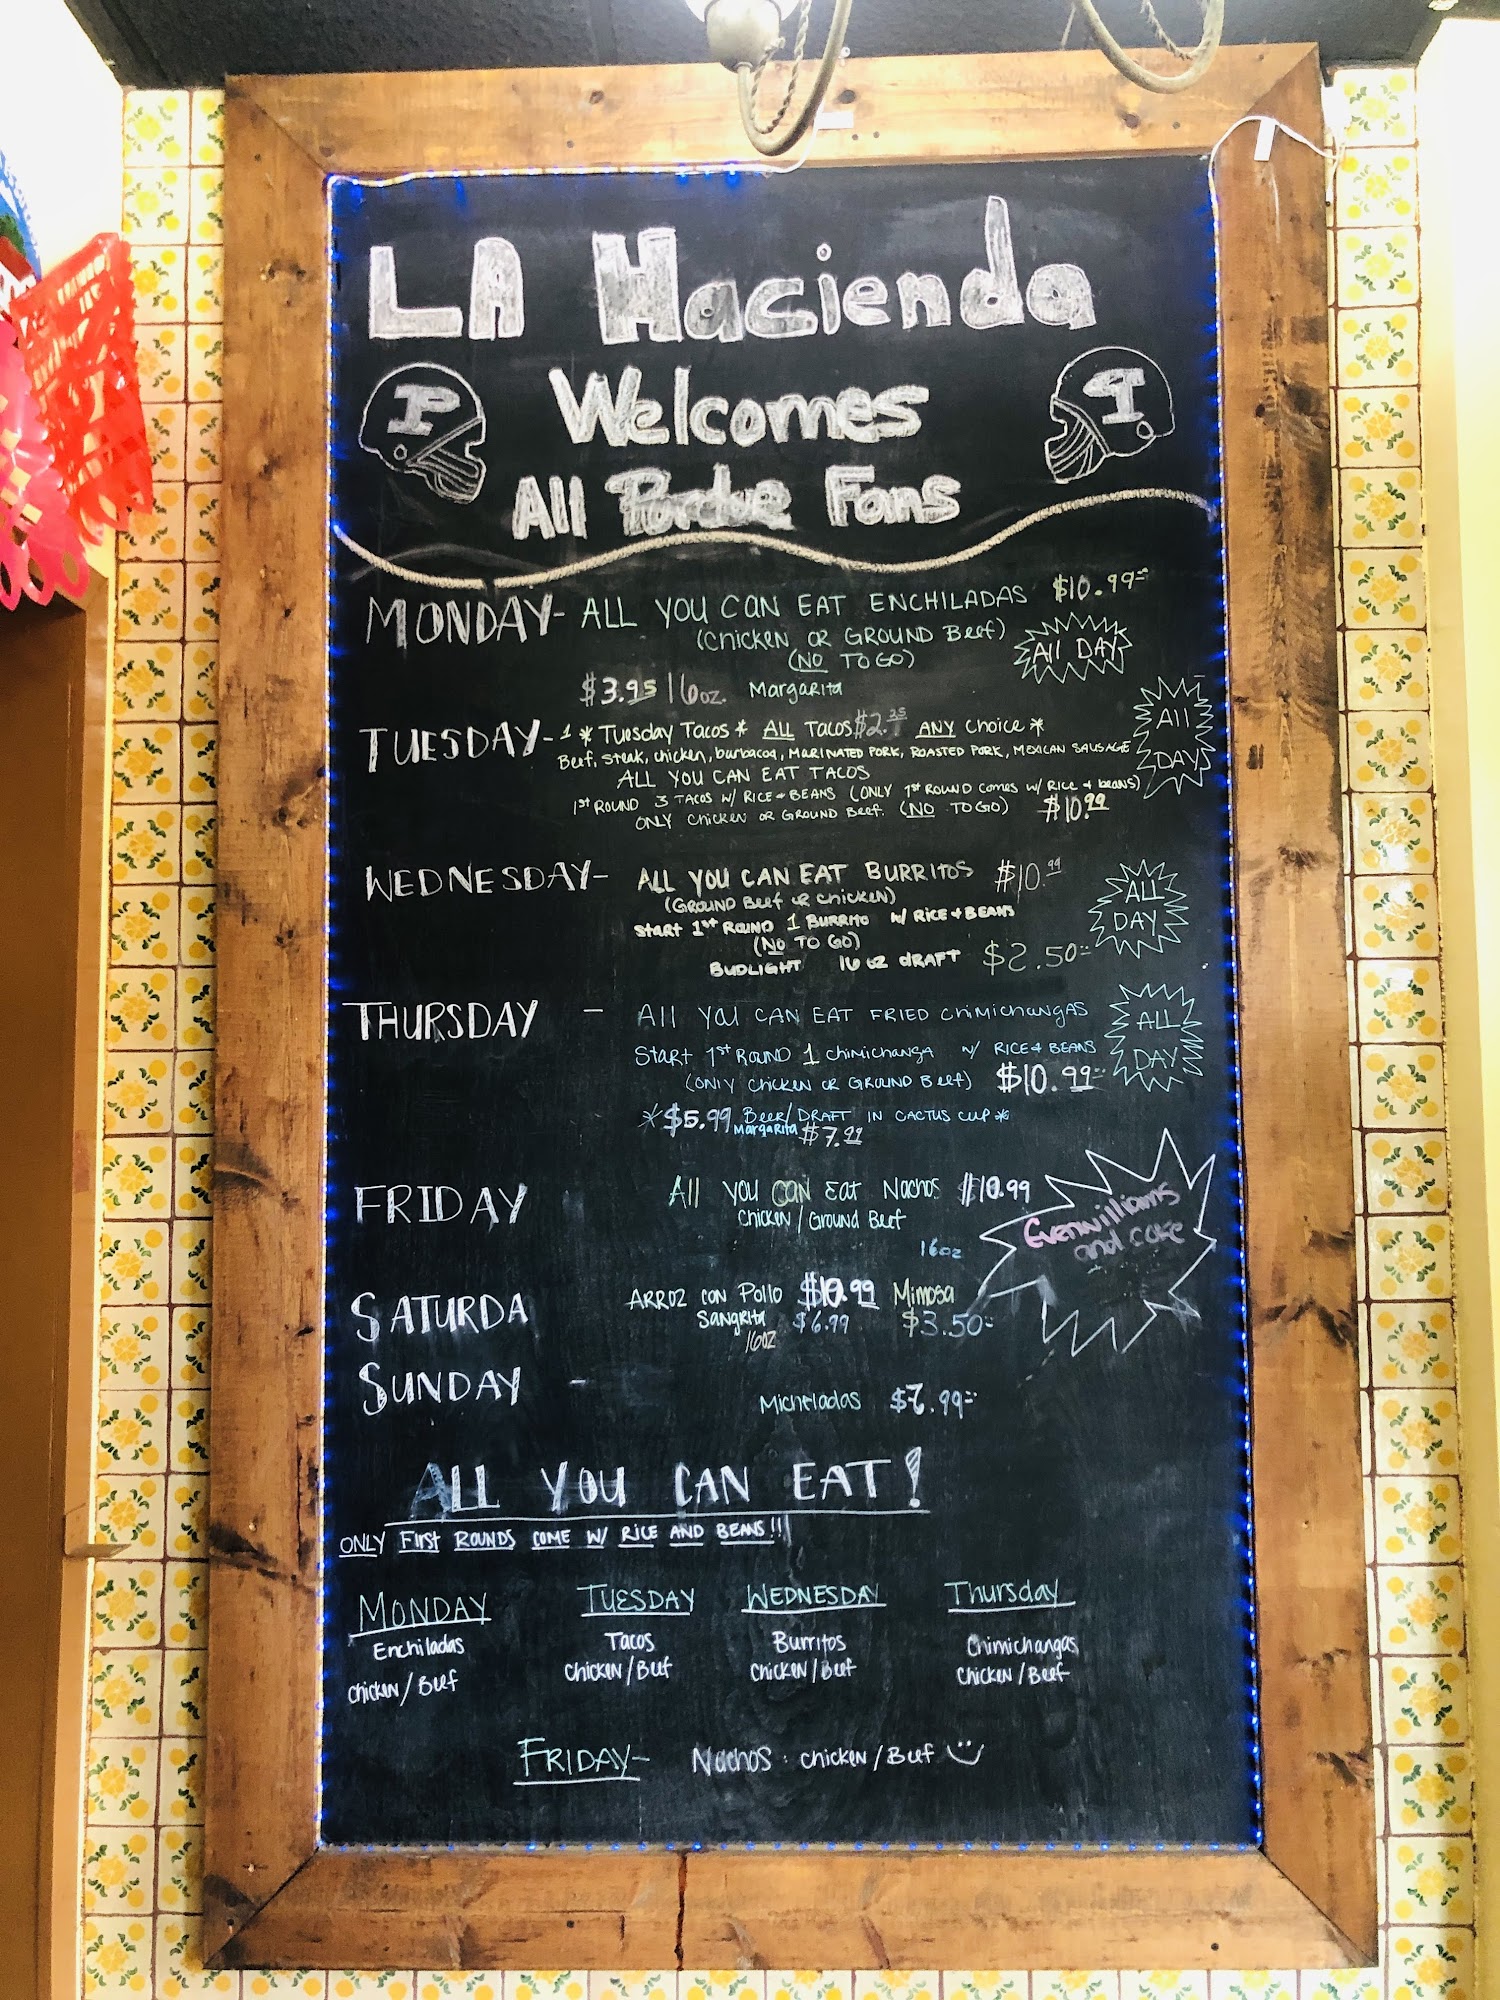 LA Hacienda
P
P
Welcomes
All Purdue Fans
MONDAY- ALL YOU CAN EAT ENCHILADAS $10.99
(Chicken OR GROUND Beef)
(NO TO GO)
All DAY
$3.95 16oz. Margarita
TUESDAY- 1 * Tuesday Tacos * ALL Tacos $2.25 ANY Choice *
Beef, steak, chicken, barbacoa, MARINATED PORK, ROASTED PORK, MEXICAN SAUSAGE
ALL YOU CAN EAT TACOS
1st ROUND 3 TACOS W/ RICE + BEANS (ONLY 1st ROUND comes w/ Rice + beans)
ONLY Chicken OR GROUND Beef. (NO TO GO) $10.99
All DAY
WEDNESDAY- ALL YOU CAN EAT BURRITOS $10.99
(GROUND Beef OR Chicken)
Start 1st ROUND 1 BURRITO W/ RICE + BEANS
(NO TO GO)
BUDLIGHT 16 oz dRAFT $2.50
ALL DAY
THURSDAY - All YOU CAN EAT FRIED Chimichangas
Start 1st ROUND 1 chimichanga w/ RICE & BEANS
(ONLY Chicken OR GROUND Beef) $10.99
*$5.99 Beer/DRAFT IN CACTUS CUP*
Margarita $7.99
ALL DAY
FRIDAY All YOU CAN Eat Nachos $10.99
Chicken / Ground Beef
16oz
Evenwilliams
and coke
SATURDA ARROZ CON Pollo $10.99 Mimosa
Sangrita $6.99 $3.50
16OZ
SUNDAY - Micheladas $7.99
ALL YOU CAN EAT!
ONLY First ROUNDS COME W/ RICE AND BEANS!!
MONDAY TUESDAY WEDNESDAY Thursday
Enchiladas Tacos Burritos Chimichangas
Chicken/Beef Chicken/Beef Chicken/Beef Chicken/Beef
FRIDAY- Nachos: chicken/Beef